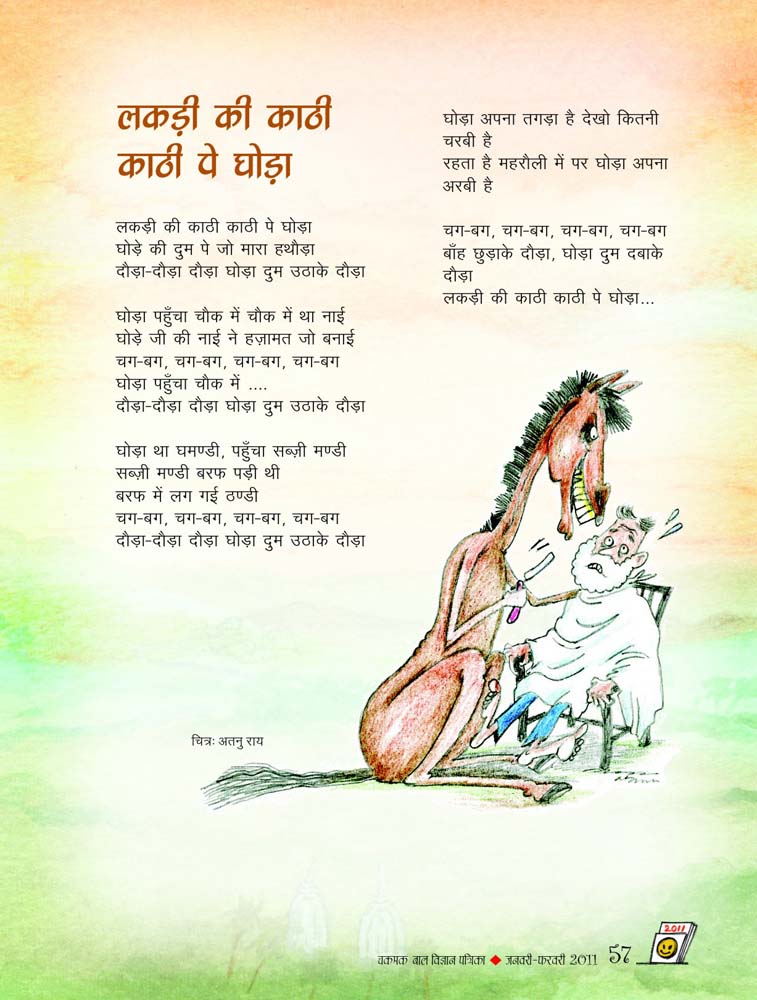 लकड़ी की काठी
काठी पे घोड़ा
लकड़ी की काठी काठी पे घोड़ा
घोड़े की दुम पे जो मारा हथौड़ा
दौड़ा-दौड़ा दौड़ा घोड़ा दुम उठाके दौड़ा
घोड़ा पहुँचा चौक में चौक में था नाई
घोड़े जी की नाई ने हज़ामत जो बनाई
चग-बग, चग-बग, चग-बग, चग-बग
घोड़ा पहुँचा चौक में ....
दौड़ा-दौड़ा दौड़ा घोड़ा दुम उठाके दौड़ा
घोड़ा था घमण्डी, पहुँचा सब्ज़ी मण्डी
सब्ज़ी मण्डी बरफ पड़ी थी
बरफ में लग गई ठण्डी
चग-बग, चग-बग, चग-बग, चग-बग
दौड़ा-दौड़ा दौड़ा घोड़ा दुम उठाके दौड़ा
घोड़ा अपना तगड़ा है देखो कितनी
चरबी है
रहता है महरौली में पर घोड़ा अपना
अरबी है
चग-बग, चग-बग, चग-बग, चग-बग
बाँह छुड़ाके दौड़ा, घोड़ा दुम दबाके
दौड़ा
लकड़ी की काठी काठी पे घोड़ा...
चित्र: अतनु राय
चकमक बाल विज्ञान पत्रिका ◆ जनवरी-फरवरी 2011 57
2011